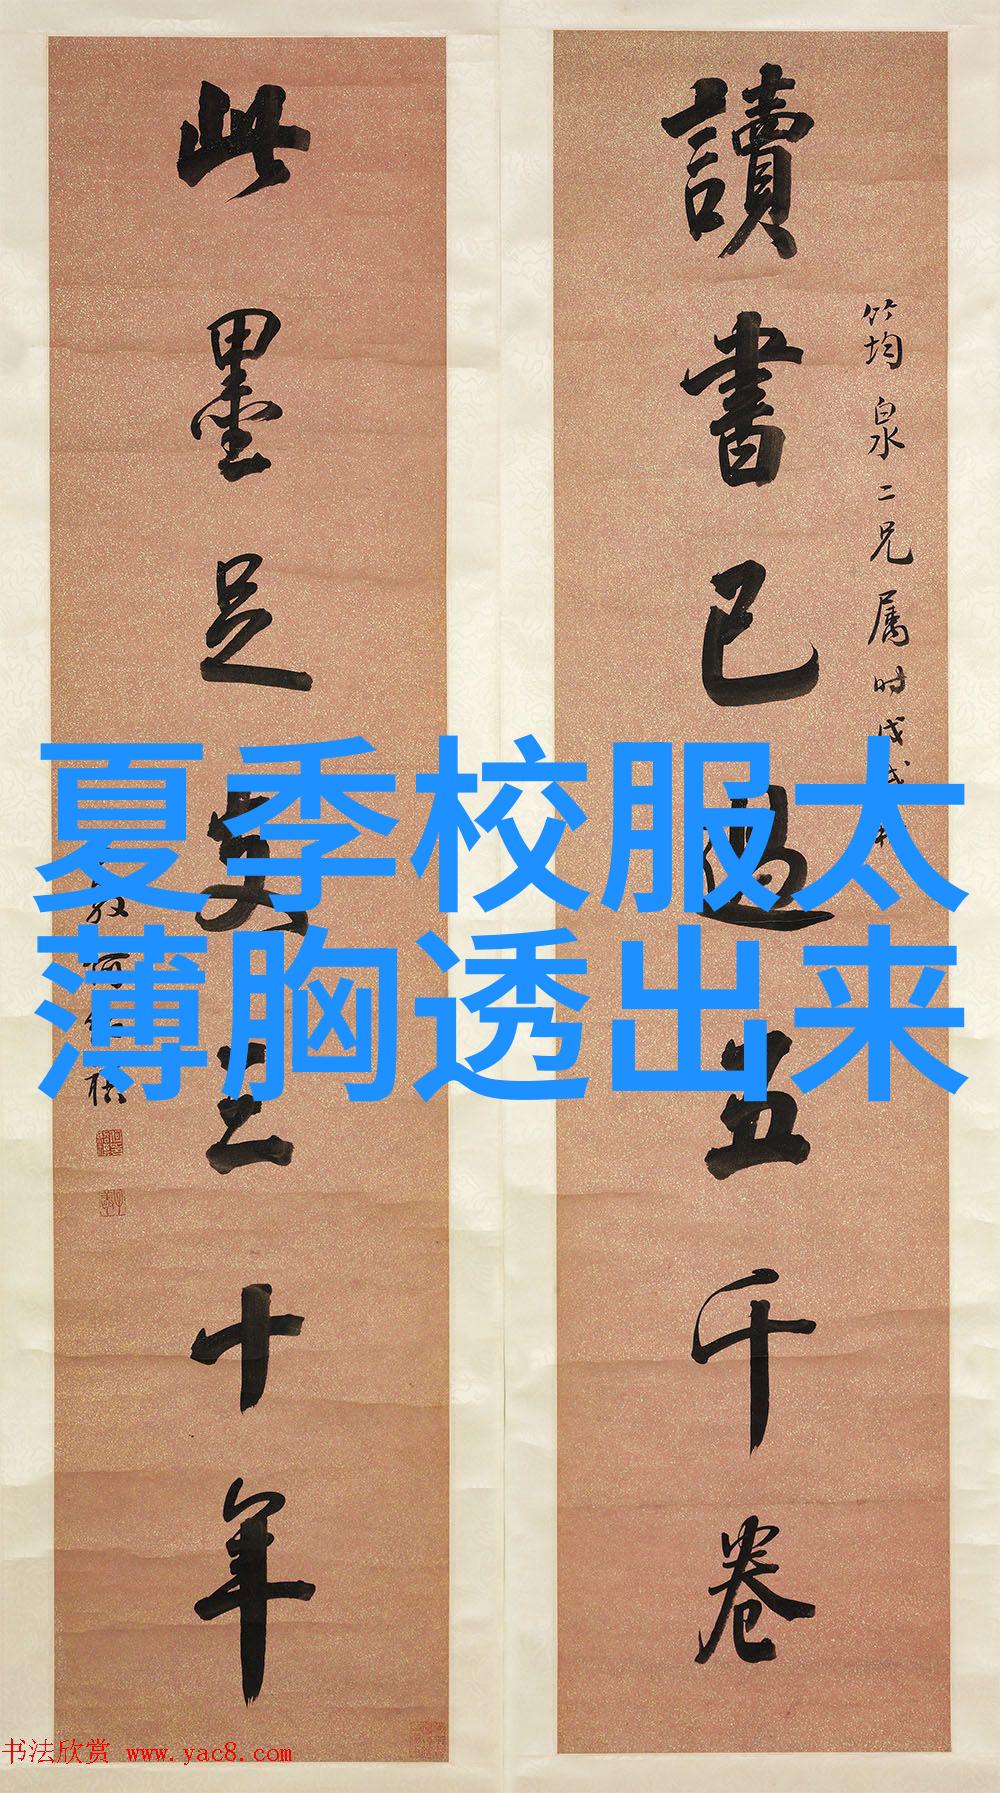 讀書已過五千卷
竹均泉二兄属时戊戌
此墨足支三十年
夏季校服太
薄胸透出来
书法欣赏 www.yac8.com